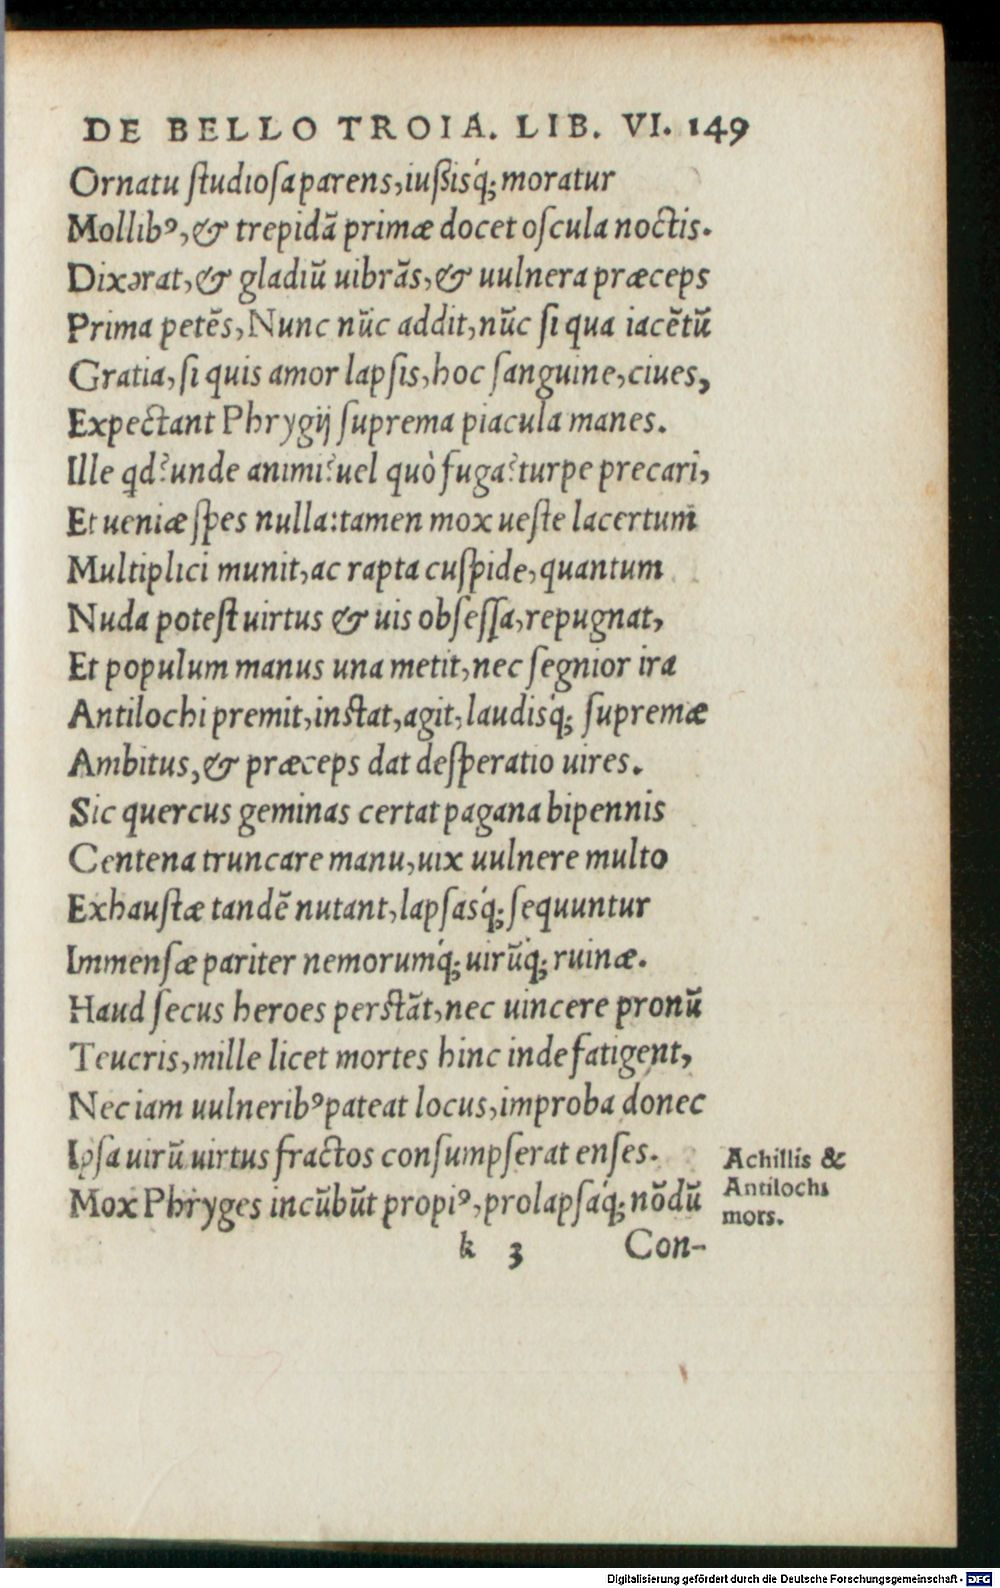 DE BELLO TROIA. LIB. VI. 149
Ornatu ſtudioſa parens, iußisq́; moratur
Mollibꝰ, & trepidã primæ docet oſcula noctis.
Dixǝrat, & gladiũ uibrãs, & uulnera præceps
Prima petẽs, Nunc nũc addit, nũc ſi qua iacẽtũ
Gratia, ſi quis amor lapſis, hoc ſanguine, ciues,
Expectant Phrygij ſuprema piacula manes.
Ille qd? unde animi? uel quò fuga? turpe precari,
Et ueniæ ſpes nulla: tamen mox ueſte lacertum
Multiplici munit, ac rapta cuſpide, quantum
Nuda poteſt uirtus & uis obſeſſa, repugnat,
Et populum manus una metit, nec ſegnior ira
Antilochi premit, inſtat, agit, laudisq́; ſupremæ
Ambitus, & præceps dat deſperatio uires.
Sic quercus geminas certat pagana bipennis
Centena truncare manu, uix uulnere multo
Exhauſtæ tandẽ nutant, lapſasq́; ſequuntur
Immenſæ pariter nemorumq́; uirũq́; ruinæ.
Haud ſecus heroes perſtãt, nec uincere pronũ
Teucris, mille licet mortes hinc inde fatigent,
Nec iam uulneribꝰ pateat locus, improba donec
Ipſa uirũ uirtus fractos conſumpſerat enſes.
Mox Phryges incũbũt propiꝰ, prolapſaq́; nõdũ
Achillis &
Antilochi
mors.
k 3 Con-
Digitalisierung gefördert durch die Deutsche Forschungsgemeinschaft - DFG